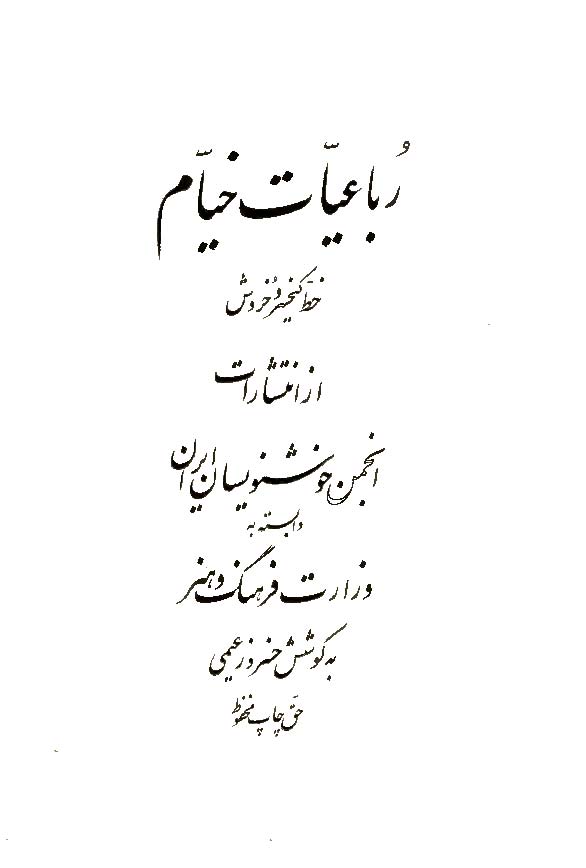 رُباعیّات خیّام
خط کیخسرو خروش
از انتشارات
انجمن خوشنویسان ایران
وابسته به
وزارت فرهنگ و هنر
به کوشش خسرو زعیمی
حقّ چاپ محفوظ